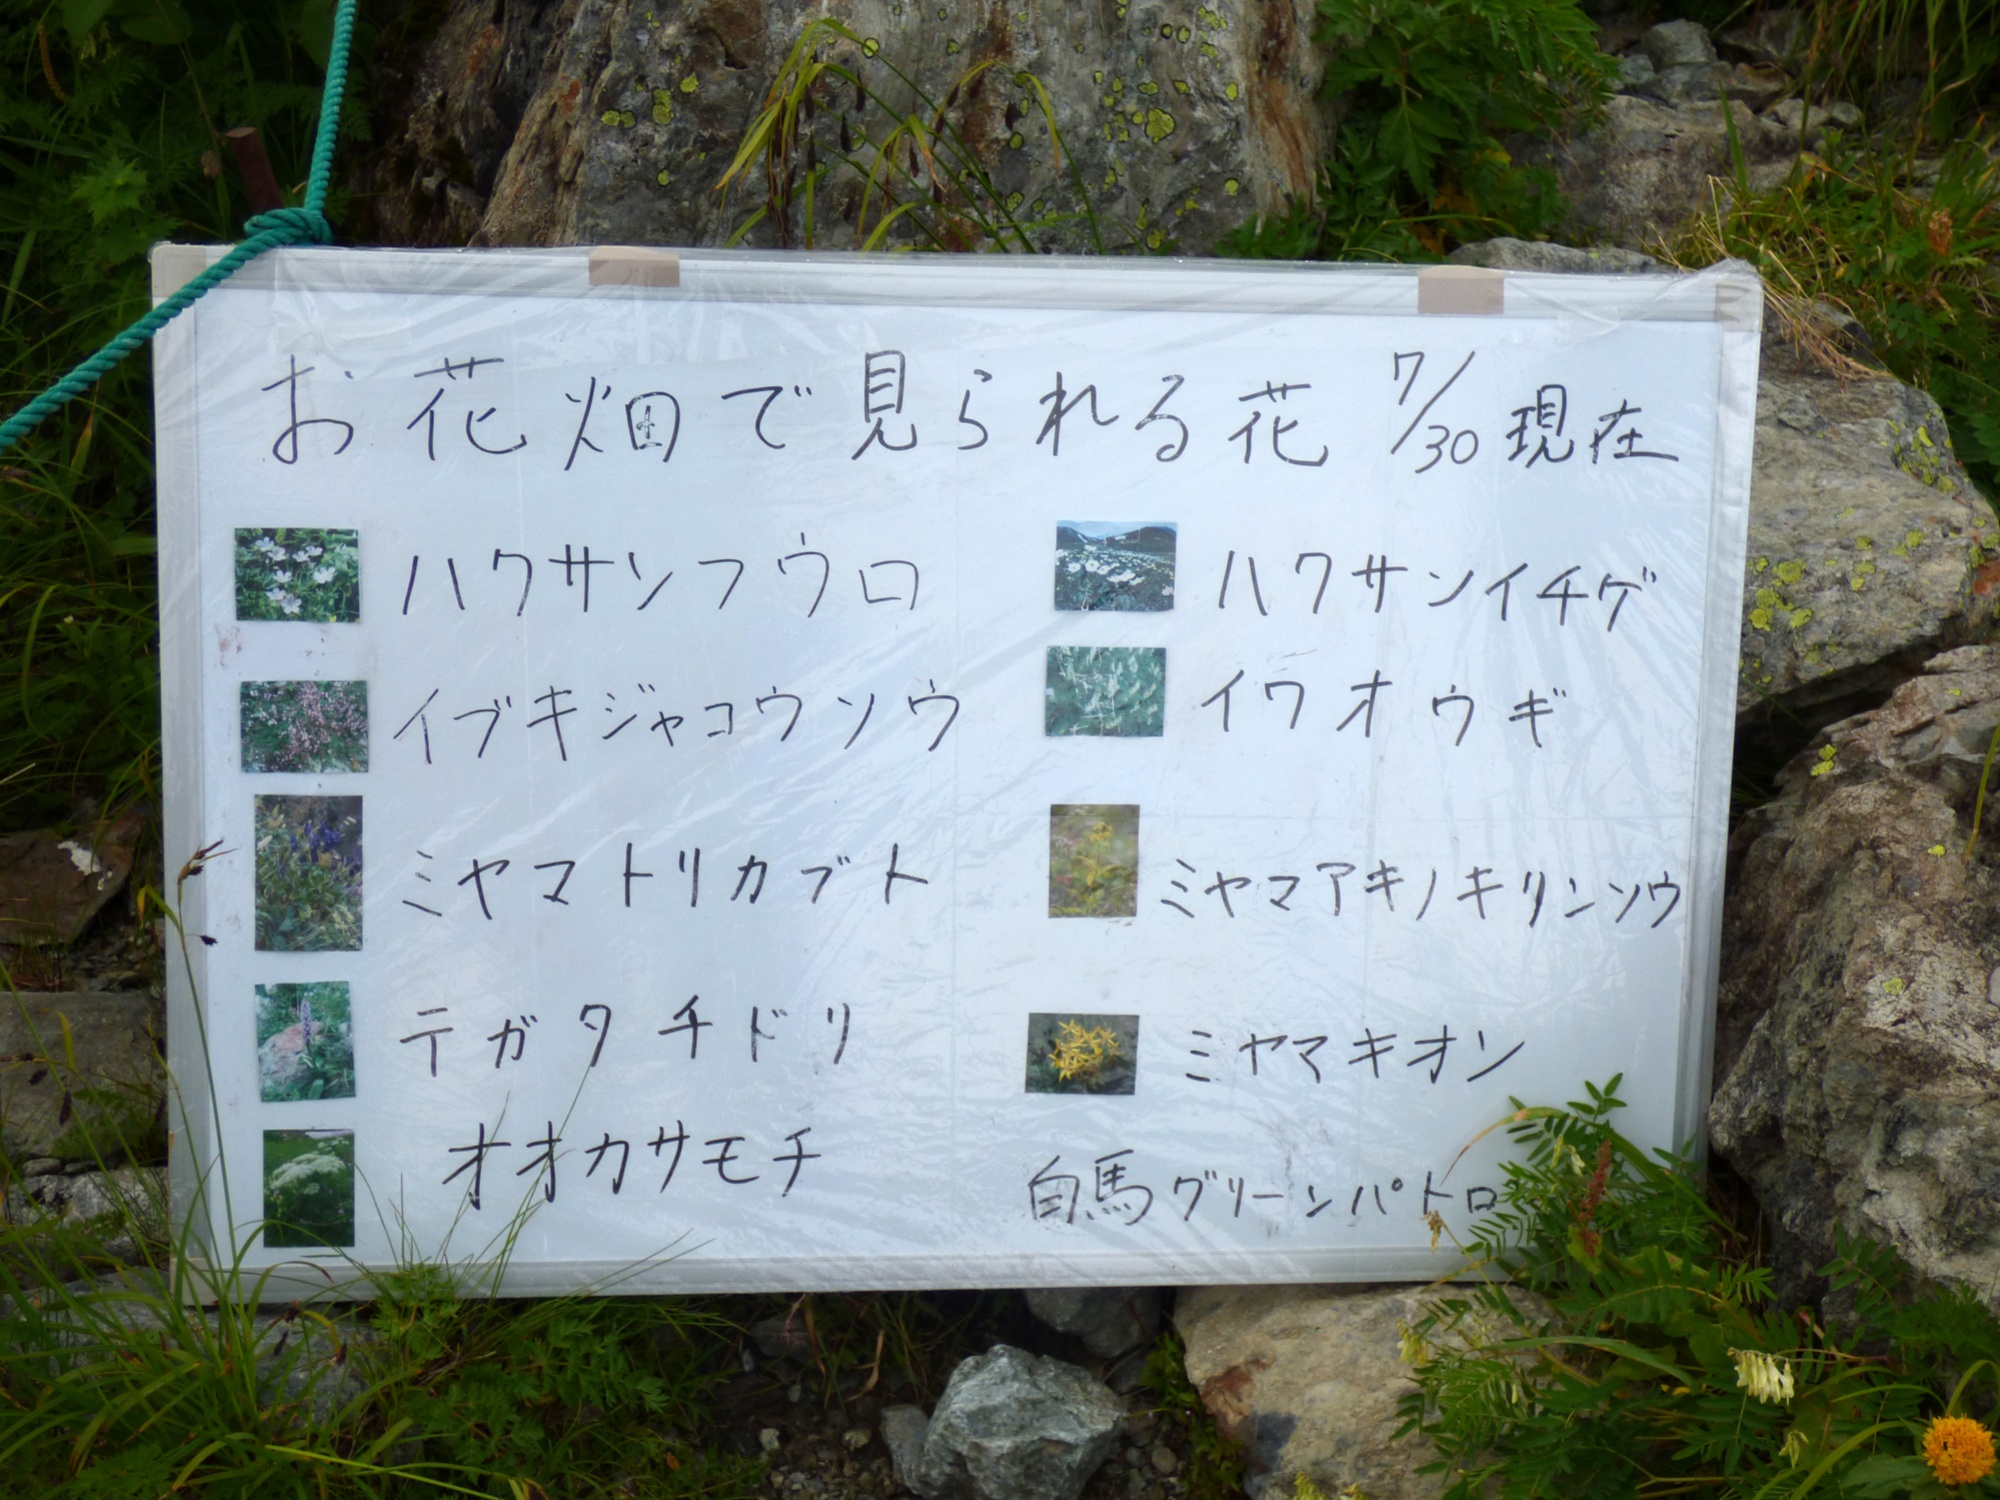 お花畑で見られる花 7/30 現在
ハクサンフウロ
イブキジャコウソウ
ミヤマトリカブト
テガタチドリ
オオカサモチ
ハクサンイチゲ
イワオウギ
ミヤマアキノキリンソウ
ミヤマキオン
白馬グリーンパトロ